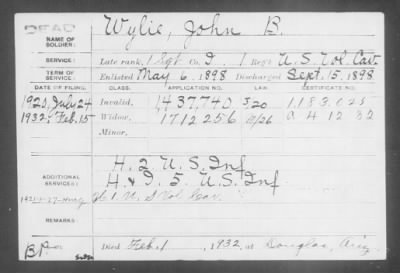 DEAD
NAME OF SOLDIER: Wylie, John B.
SERVICE: Late rank, 1 Sgt Co. I, 1 Reg't U.S. Vol. Cav.
TERM OF SERVICE: Enlisted May 6, 1898 Discharged Sept. 15, 1898
DATE OF FILING. CLASS. APPLICATION NO. LAW. CERTIFICATE NO.
1920, July 24 Invalid, 1,437,740 1,183,025
1932, Feb. 15 Widow, 1712256 A 4 12 32
Minor,
ADDITIONAL SERVICES: H. 2 U.S. Inf
H & I. 5 U.S. Inf
1 U S Vol Cav.
REMARKS:
Died Feb. 1, 1932, at Douglas, Ariz.